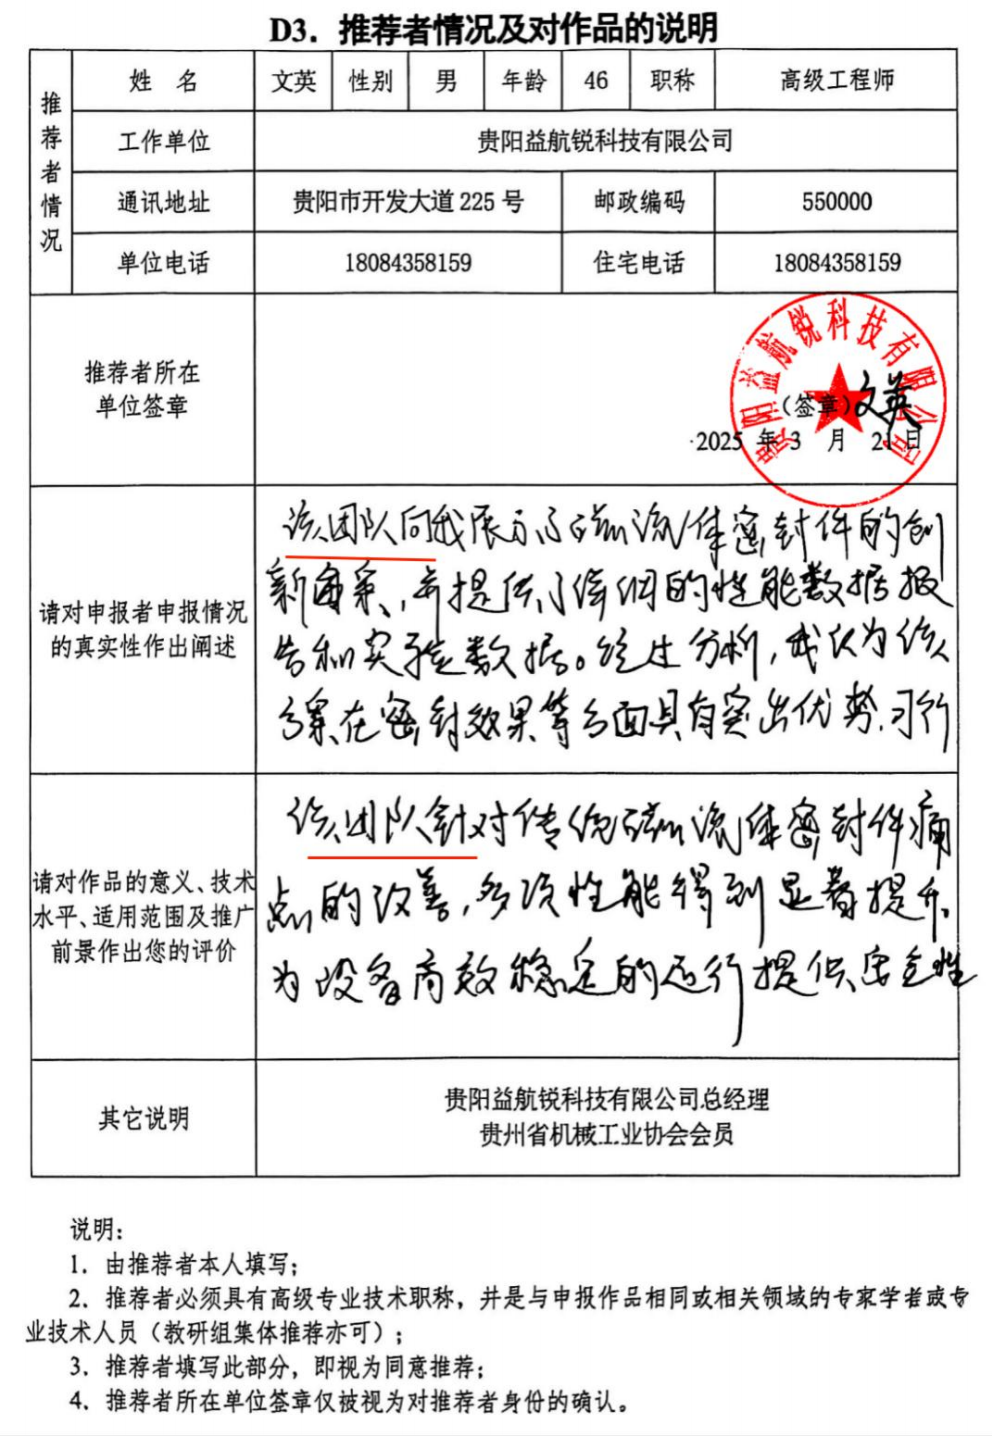 D3. 推荐者情况及对作品的说明
推荐者情况
姓 名 文英 性别 男 年龄 46 职称 高级工程师
工作单位 贵阳益航锐科技有限公司
通讯地址 贵阳市开发大道225号 邮政编码 550000
单位电话 18084358159 住宅电话 18084358159
贵阳益航锐科技有限公司
推荐者所在
单位签章
（签章）文英
2025 年 3 月 21 日
请对申报者申报情况
的真实性作出阐述
该团队向我展示了磁流体密封件的创
新，并提供了详细的性能数据报
告和实验数据。经过分析，我认为该
方案在密封效果等方面具有突出优势，可行
请对作品的意义、技术
水平、适用范围及推广
前景作出您的评价
该团队针对传统磁流体密封件痛
点的改善，多项性能得到显著提升，
为设备高效稳定的运行提供安全性
其它说明
贵阳益航锐科技有限公司总经理
贵州省机械工业协会会员
说明：
1. 由推荐者本人填写；
2. 推荐者必须具有高级专业技术职称，并是与申报作品相同或相关领域的专家学者或专
业技术人员（教研组集体推荐亦可）；
3. 推荐者填写此部分，即视为同意推荐；
4. 推荐者所在单位签章仅被视为对推荐者身份的确认。